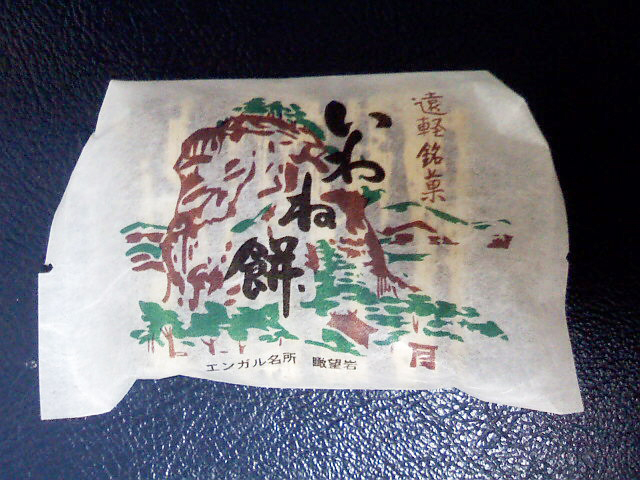 遠軽銘菓
いわね餅
エンガル名所 瞰望岩